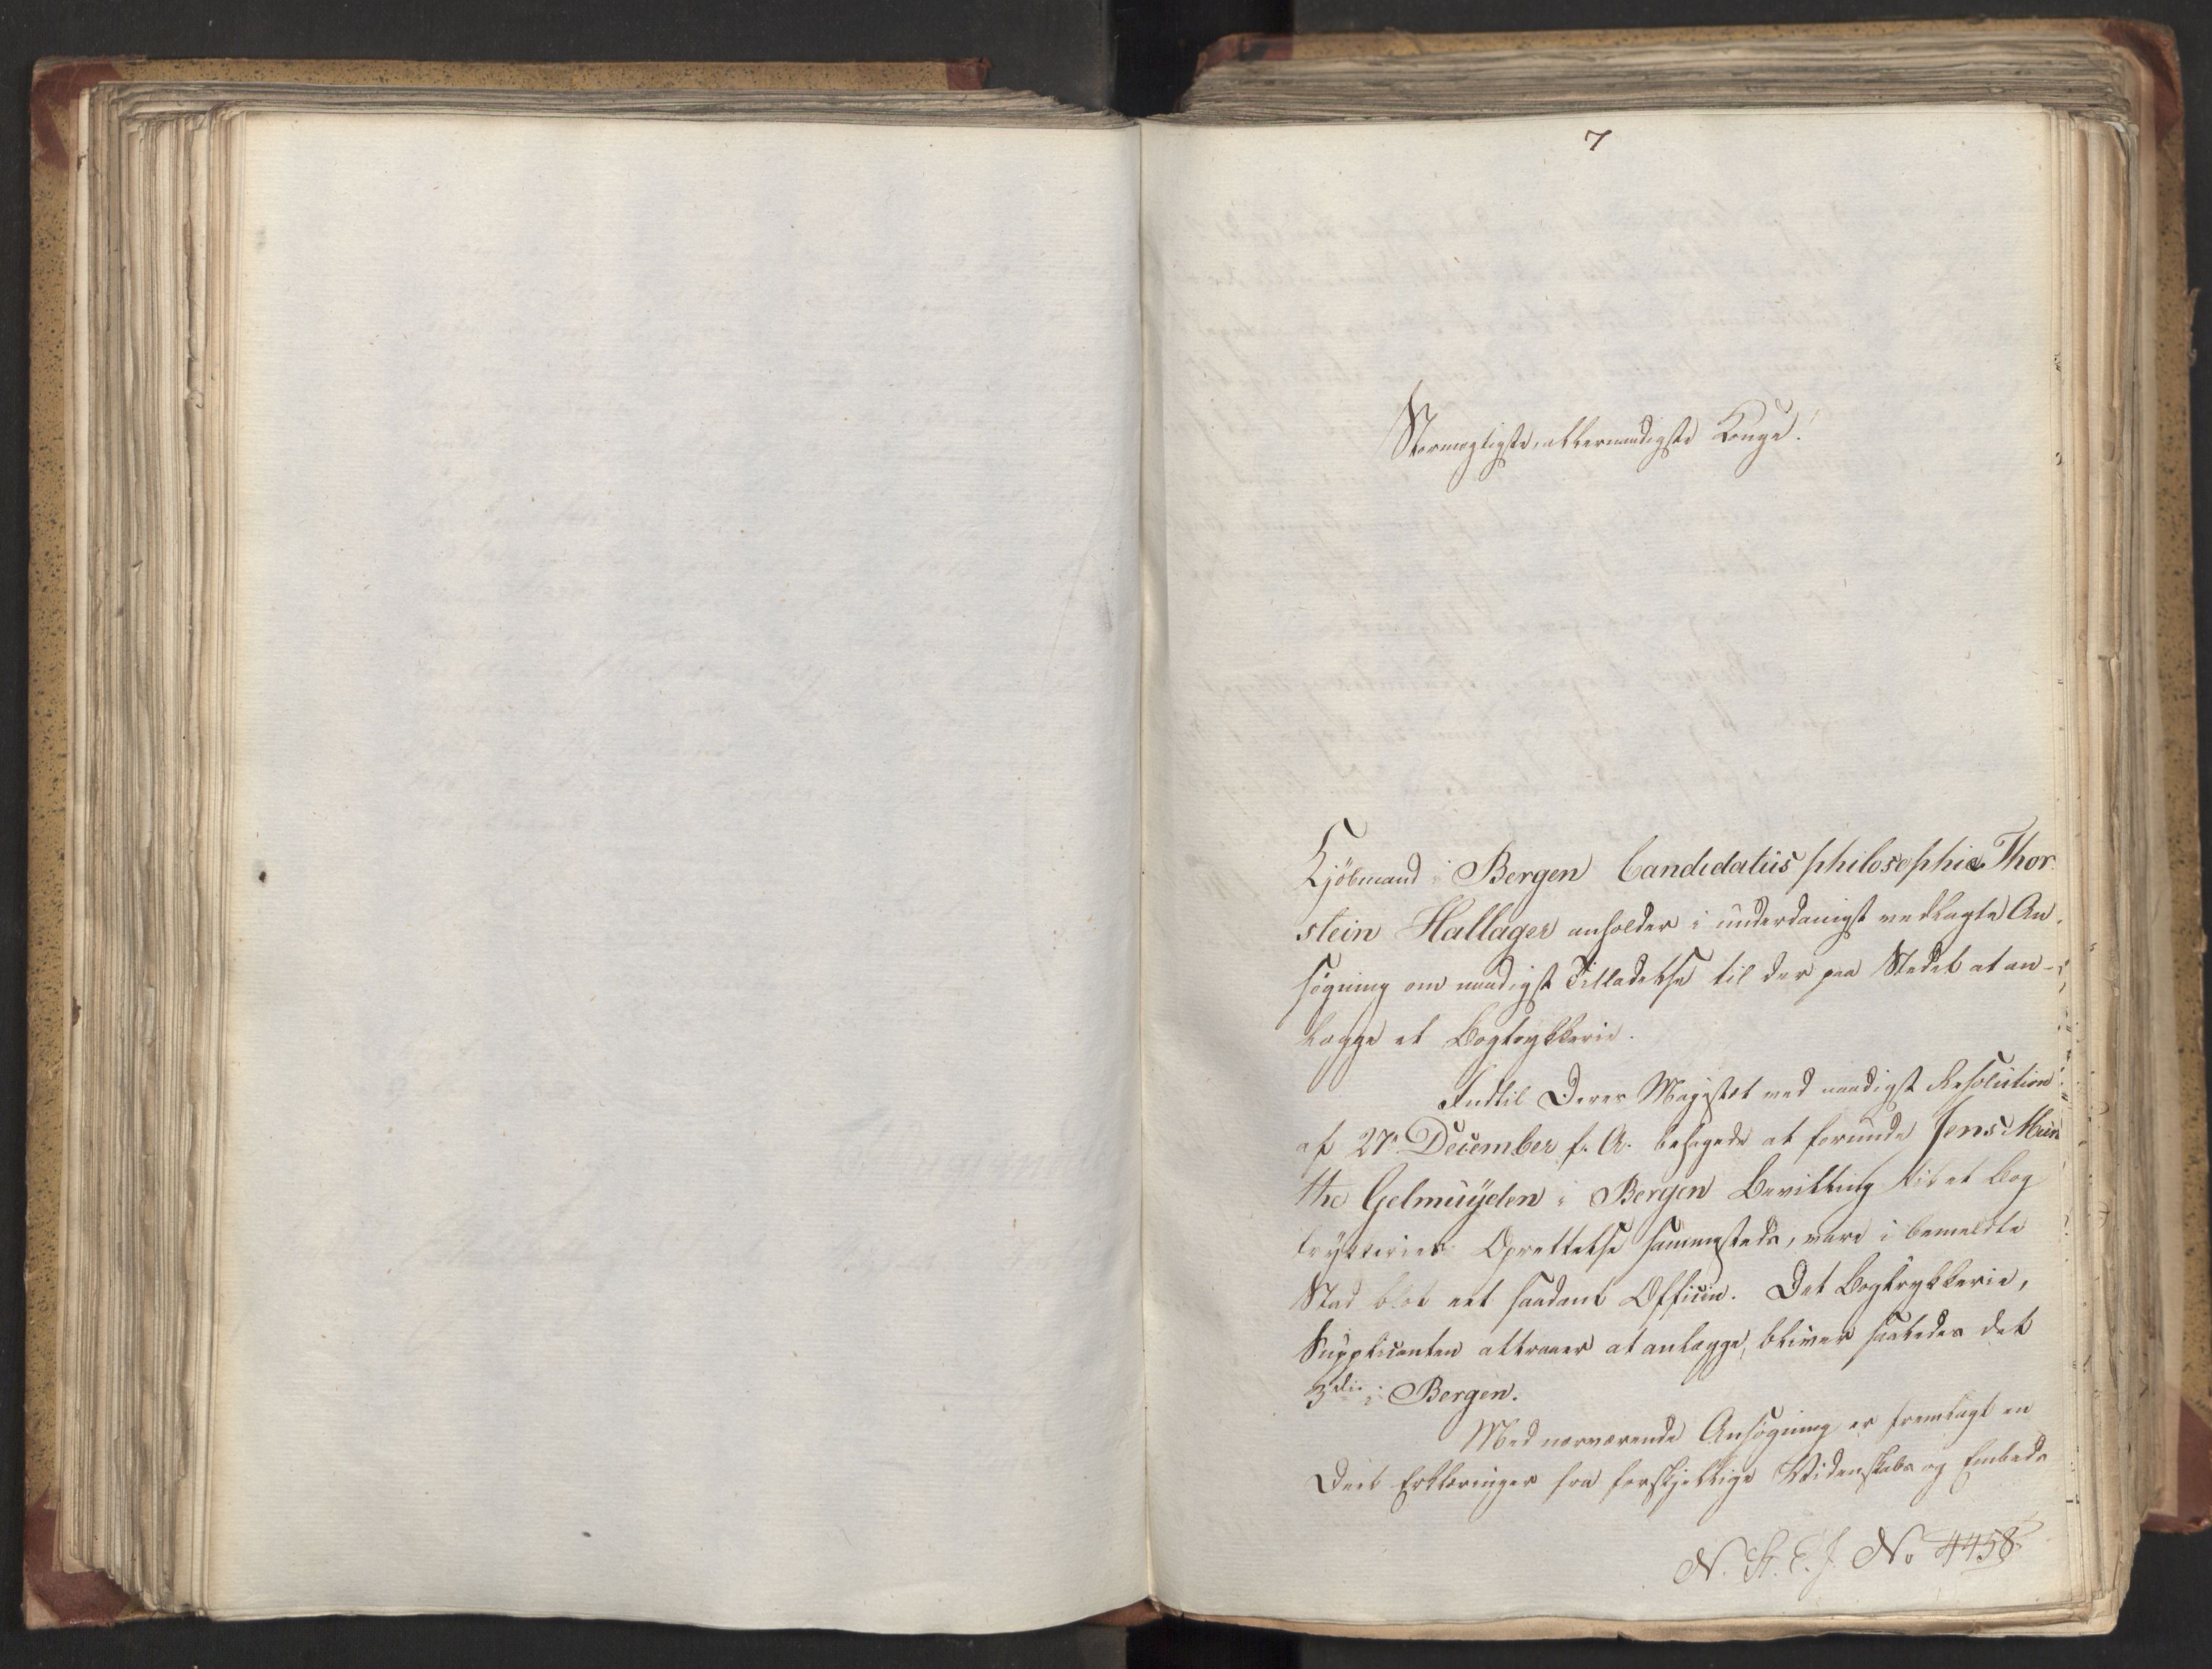 7
Stormægtigste, allernaadigste Konge!
Kjöbmand i Bergen Candidatus philosophiæ Thor
stein Hallager anholder i underdanigst vedlagte An-
sögning om naadigst Tilladelse til der paa Stedet at an-
lægge et Bogtrykkerie.
Indtil Deres Majestæt ved naadigst Resolution
af 27de December f. A. behagede at forunde Jens Mun
the Gelmuÿden i Bergen Bevilling til et Bog
trykkeries Oprettelse sammesteds, var i bemeldte
Stad blot eet saadant Officin. Det Bogtrykkerie,
Supplicanten attraaer at anlægge, bliver saaledes det
3die i Bergen.
Med nærværende Ansögning er fremlagt en
Deel Erklæringer fra forskjellige Videnskabs og Embeds
N. St. E. J. No 4458